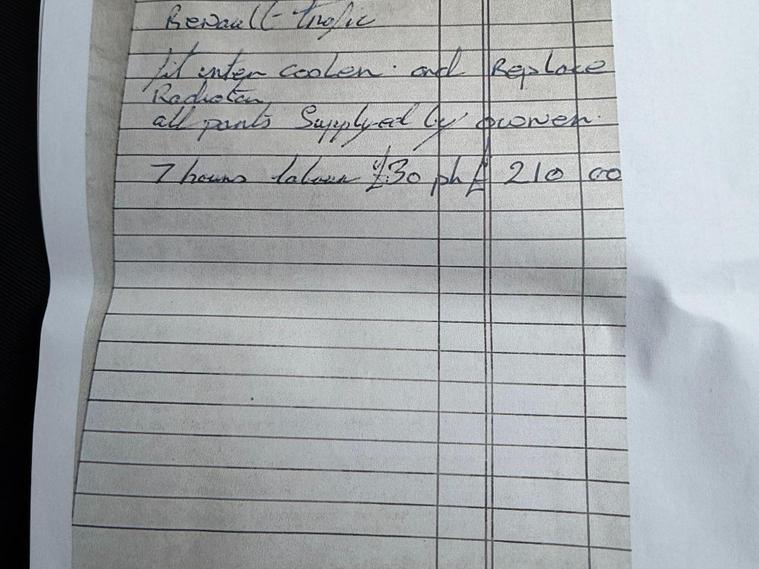 Renault trafic
fit inter cooler. and Replace
Radiator
all parts Supplyed by owner.
7 hours labour @ £30 ph £ 210 00